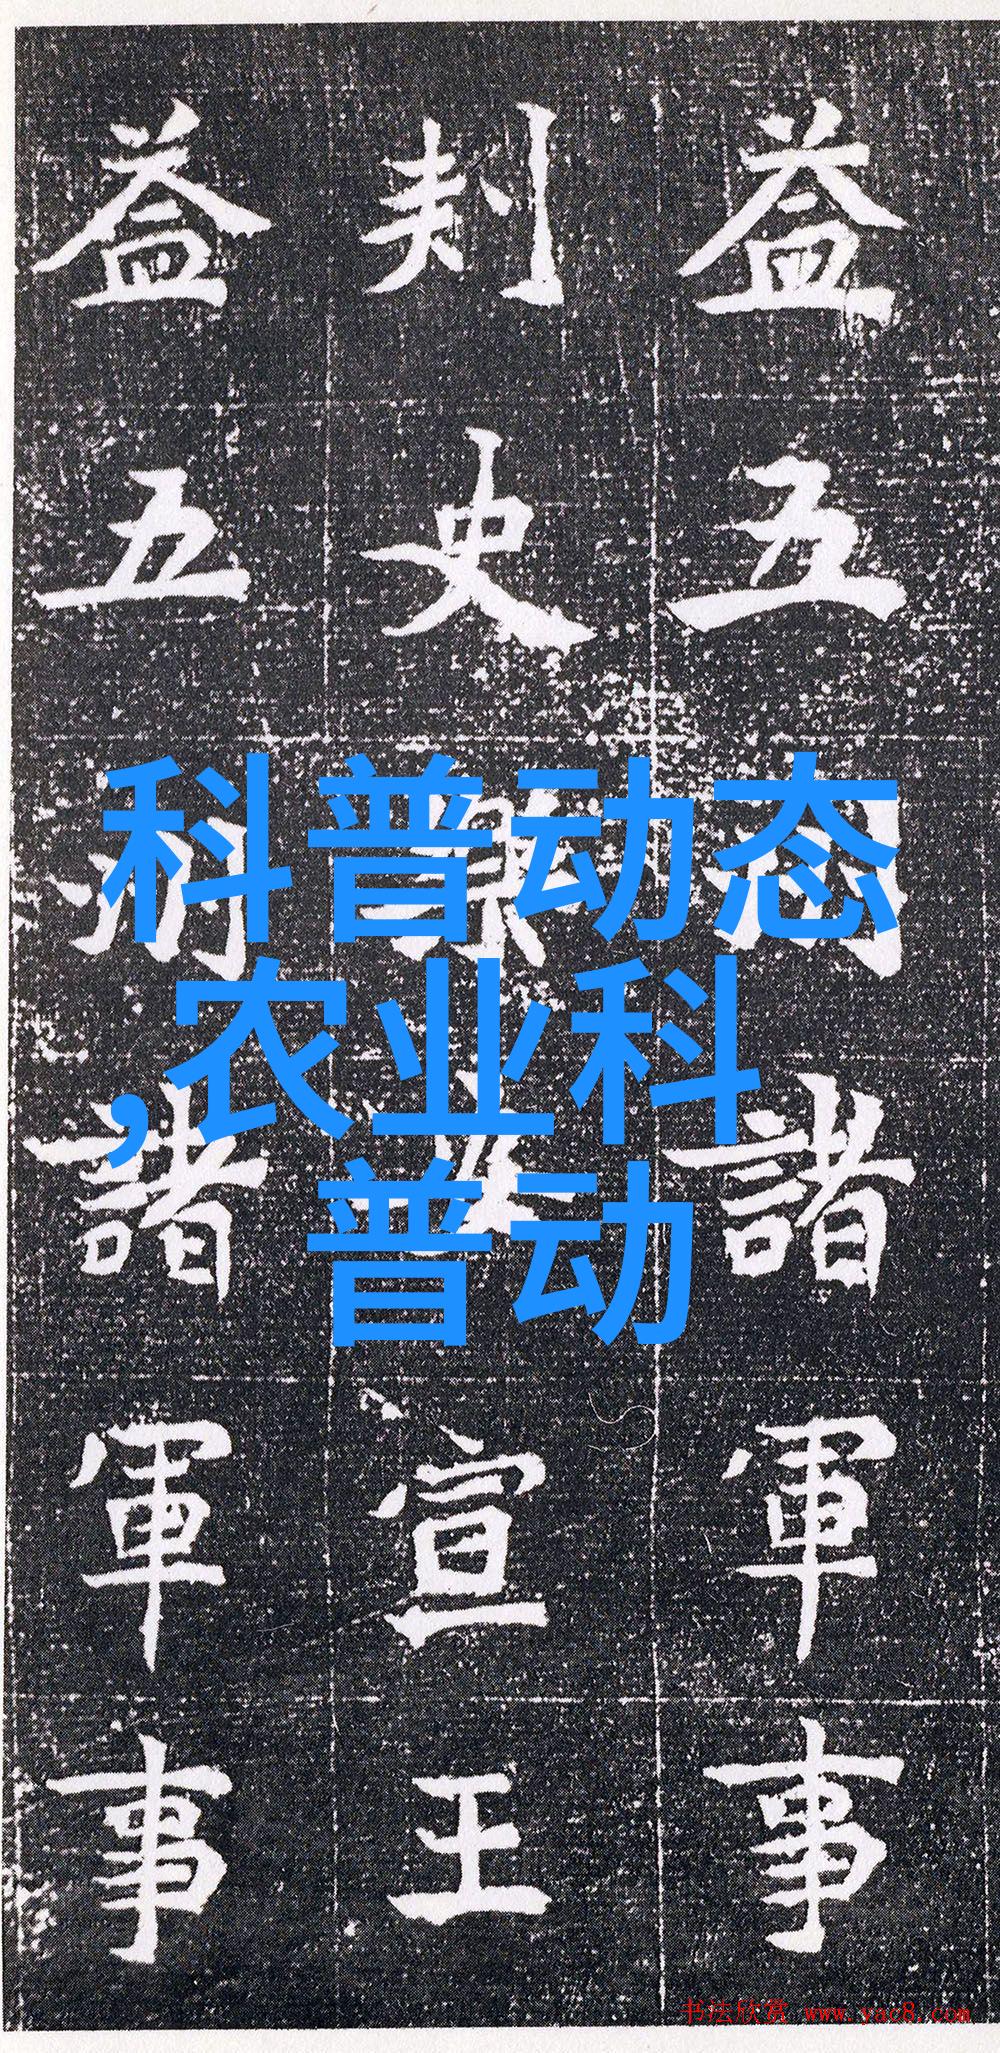 益五州諸軍事
刾史
宣王
益五州諸軍事
科普动态
,农业科
普动
书法欣赏 www.yac8.com